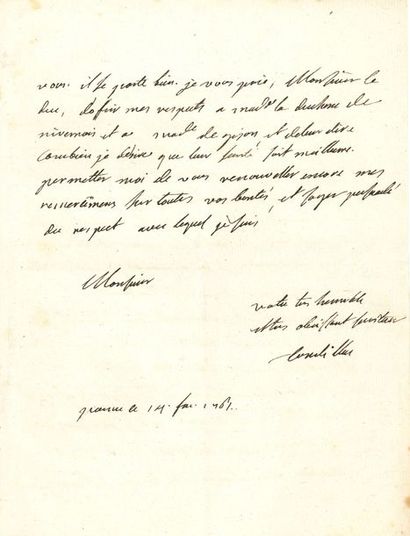 vous. il se porte bien. je vous prie, Monsieur le
duc, d'ofrir mes respects a mad.e la duchesse de
nivernois et a mad.e de gisors et de leur dire
combien je désire que leur santé soit meilleure.
permetter moi de vous renouveller encore mes
remerciemens sur toutes vos bontés, et soyez persuadé
du respect avec lequel je suis
Monsieur
votre tres humble
et tres obeissant serviteur
Condillac
parme ce 14.